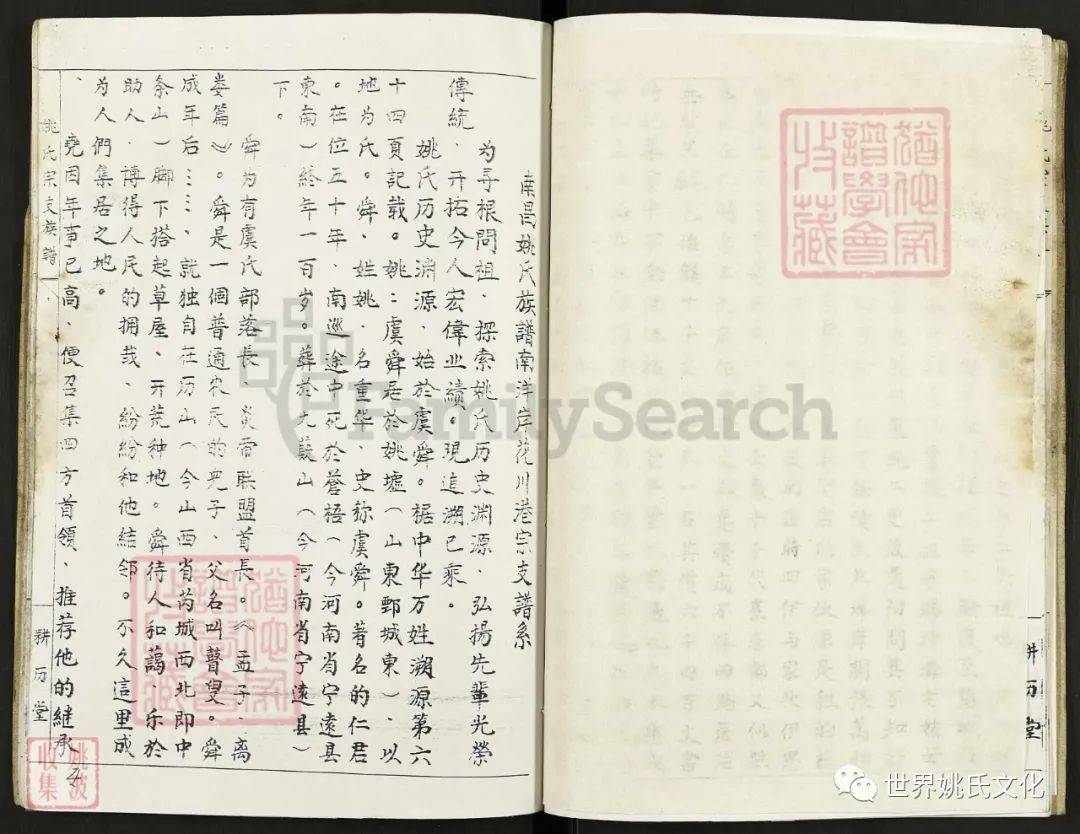 南昌姚氏族譜南洋岸花川港宗支譜系
为寻根問祖、探索姚氏历史渊源、弘揚先輩光榮
傳統、开拓今人宏偉业績。現追溯已来。
姚氏历史渊源、始於虞舜。据中华万姓溯源第六
十四頁記载。姚：虞舜居於姚墟（山東鄄城東）、以
地为氏。舜、姓姚、名重华、史称虞舜。著名的仁君
。在位五十年、南巡途中死於蒼梧（今河南省宁遠县
東南）終年一百岁。葬於九嶷山（今河南省宁遠县）
下。
舜为有虞氏部落長、炎帝联盟首長。《孟子·离
娄篇》。舜是一個普通农民的兒子、父名叫瞽叟。舜
成年后……、就独自在历山（今山西省芮城西北即中
条山）脚下搭起草屋、开荒种地。舜待人和藹、乐於
助人、博得人民的拥戴、紛紛和他結邻。不久這里成
为人們集居之地。
、堯因年事已高、便召集四方首領、推荐他的継承
姚氏宗支族譜
耕历堂
4
姚波
收集
FamilySearch
耕历堂
世界姚氏文化